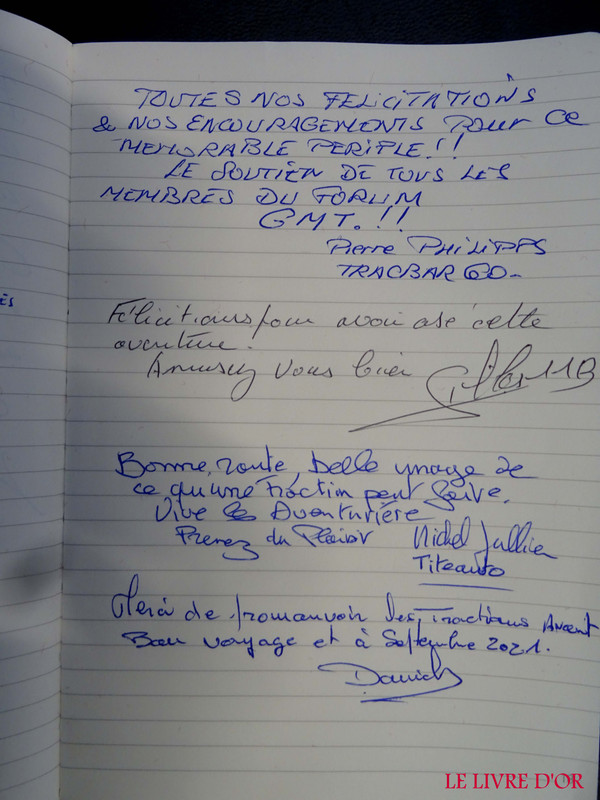 TOUTES NOS FELICITATIONS
& NOS ENCOURAGEMENTS POUR CE
MEMORABLE PERIPLE.!!
LE SOUTIEN DE TOUS LES
MEMBRES DU FORUM
GMT.!!
Pierre PHILIPPS
TRACBAR 60-
ES
Félicitations pour avoir osé cette
aventure.
Amusez vous bien
Bonne route, belle image de
ce qu'une Traction peut faire.
Vive les Aventurière
Prenez du Plaisir Michel
Titeauto
Merci de promouvoir les Tractions Avant
Bon voyage et à Septembre 2021.
Daniel
LE LIVRE D'OR